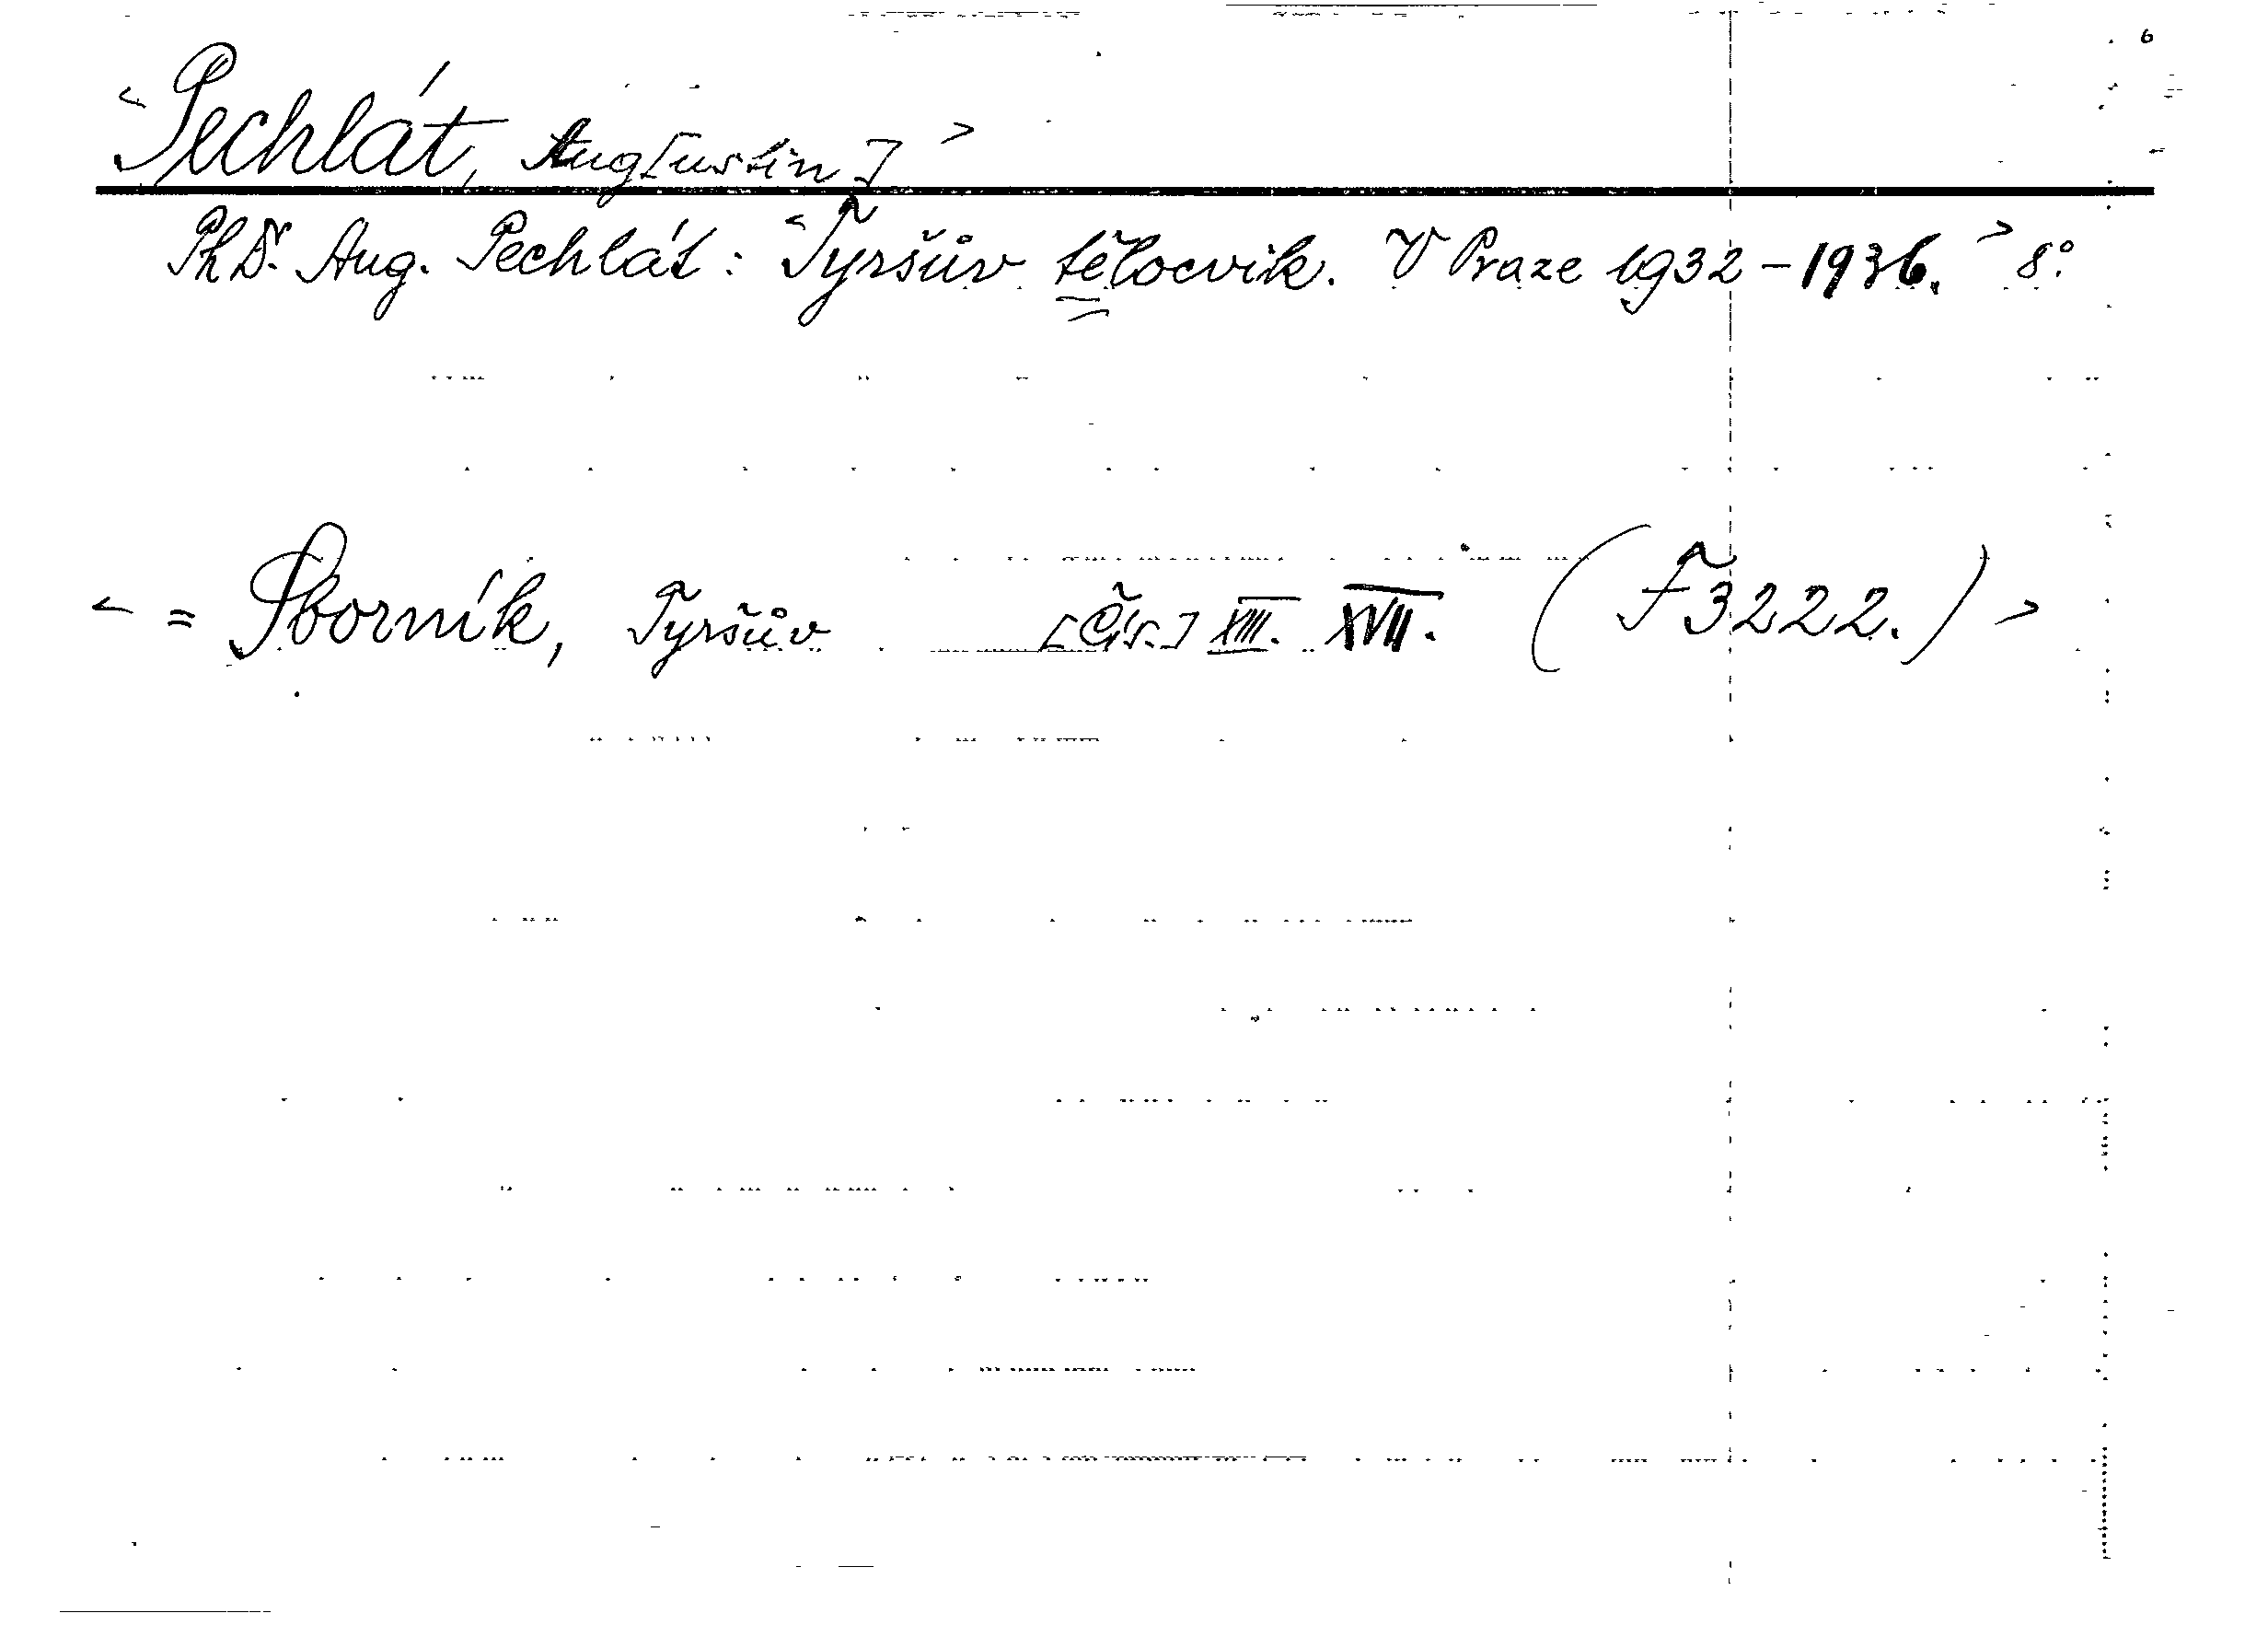 6
< Pechlát, Aug[ustin] >
PhDr. Aug. Pechlát: < Tyršův tělocvik. V Praze 1932-1936. > 8°.
< = Sborník, Tyršův [Čís.] XIII. XVII. (F 3222.) >